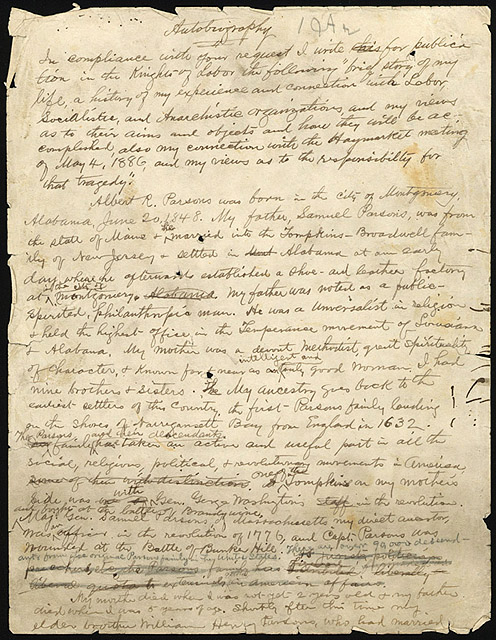 Autobiography
In compliance with your request I write this for publica-
tion in the Knights of Labor the following "brief story of my
life, a history of my experience and connection with Labor,
Socialistic, and Anarchistic organizations, and my views
as to their aims and objects and how they will be ac-
complished, also my connection with the Haymarket meeting
of May 4, 1886, and my views as to the responsibility for
that tragedy."
Albert R. Parsons was born in the city of Montgomery,
Alabama, June 20, 1848. My father, Samuel Parsons, was from
the state of Maine & he married into the Tompkins-Broadwell fam-
ily of New Jersey & settled in Alabama at an early
day, where he afterwards established a shoe and leather factory
at the city of Montgomery, Alabama. My father was noted as a public-
spirited, philanthropic man. He was a Universalist in religion
& held the highest office in the Temperance movement of Louisiana
& Alabama. My mother was a devout Methodist, great Spirituality
of character, & known far & near as an intelligent and truly good woman. I had
nine brothers & sisters. My ancestry goes back to the
earliest settlers of this Country, the first Parsons family landing
on the shores of Narragansett Bay from England in 1632.
The Parsons family and their descendants has taken an active and useful part in all the
social, religious, political, & revolutionary movements in America,
one of the Tompkins on my mothers
side was with Gen. George Washington in the revolution
and fought at the battle of Brandywine,
Maj. Gen. Samuel Parsons, of Massachusetts my direct ancestor,
was an officer in the revolution of 1776, and Capt. Parsons was
wounded at the Battle of Bunker Hill.
My mother died when I was not yet 2 years old & my father
died when I was 5 years of age. Shortly after this time my
elder brother William Henry Parsons, who had married,